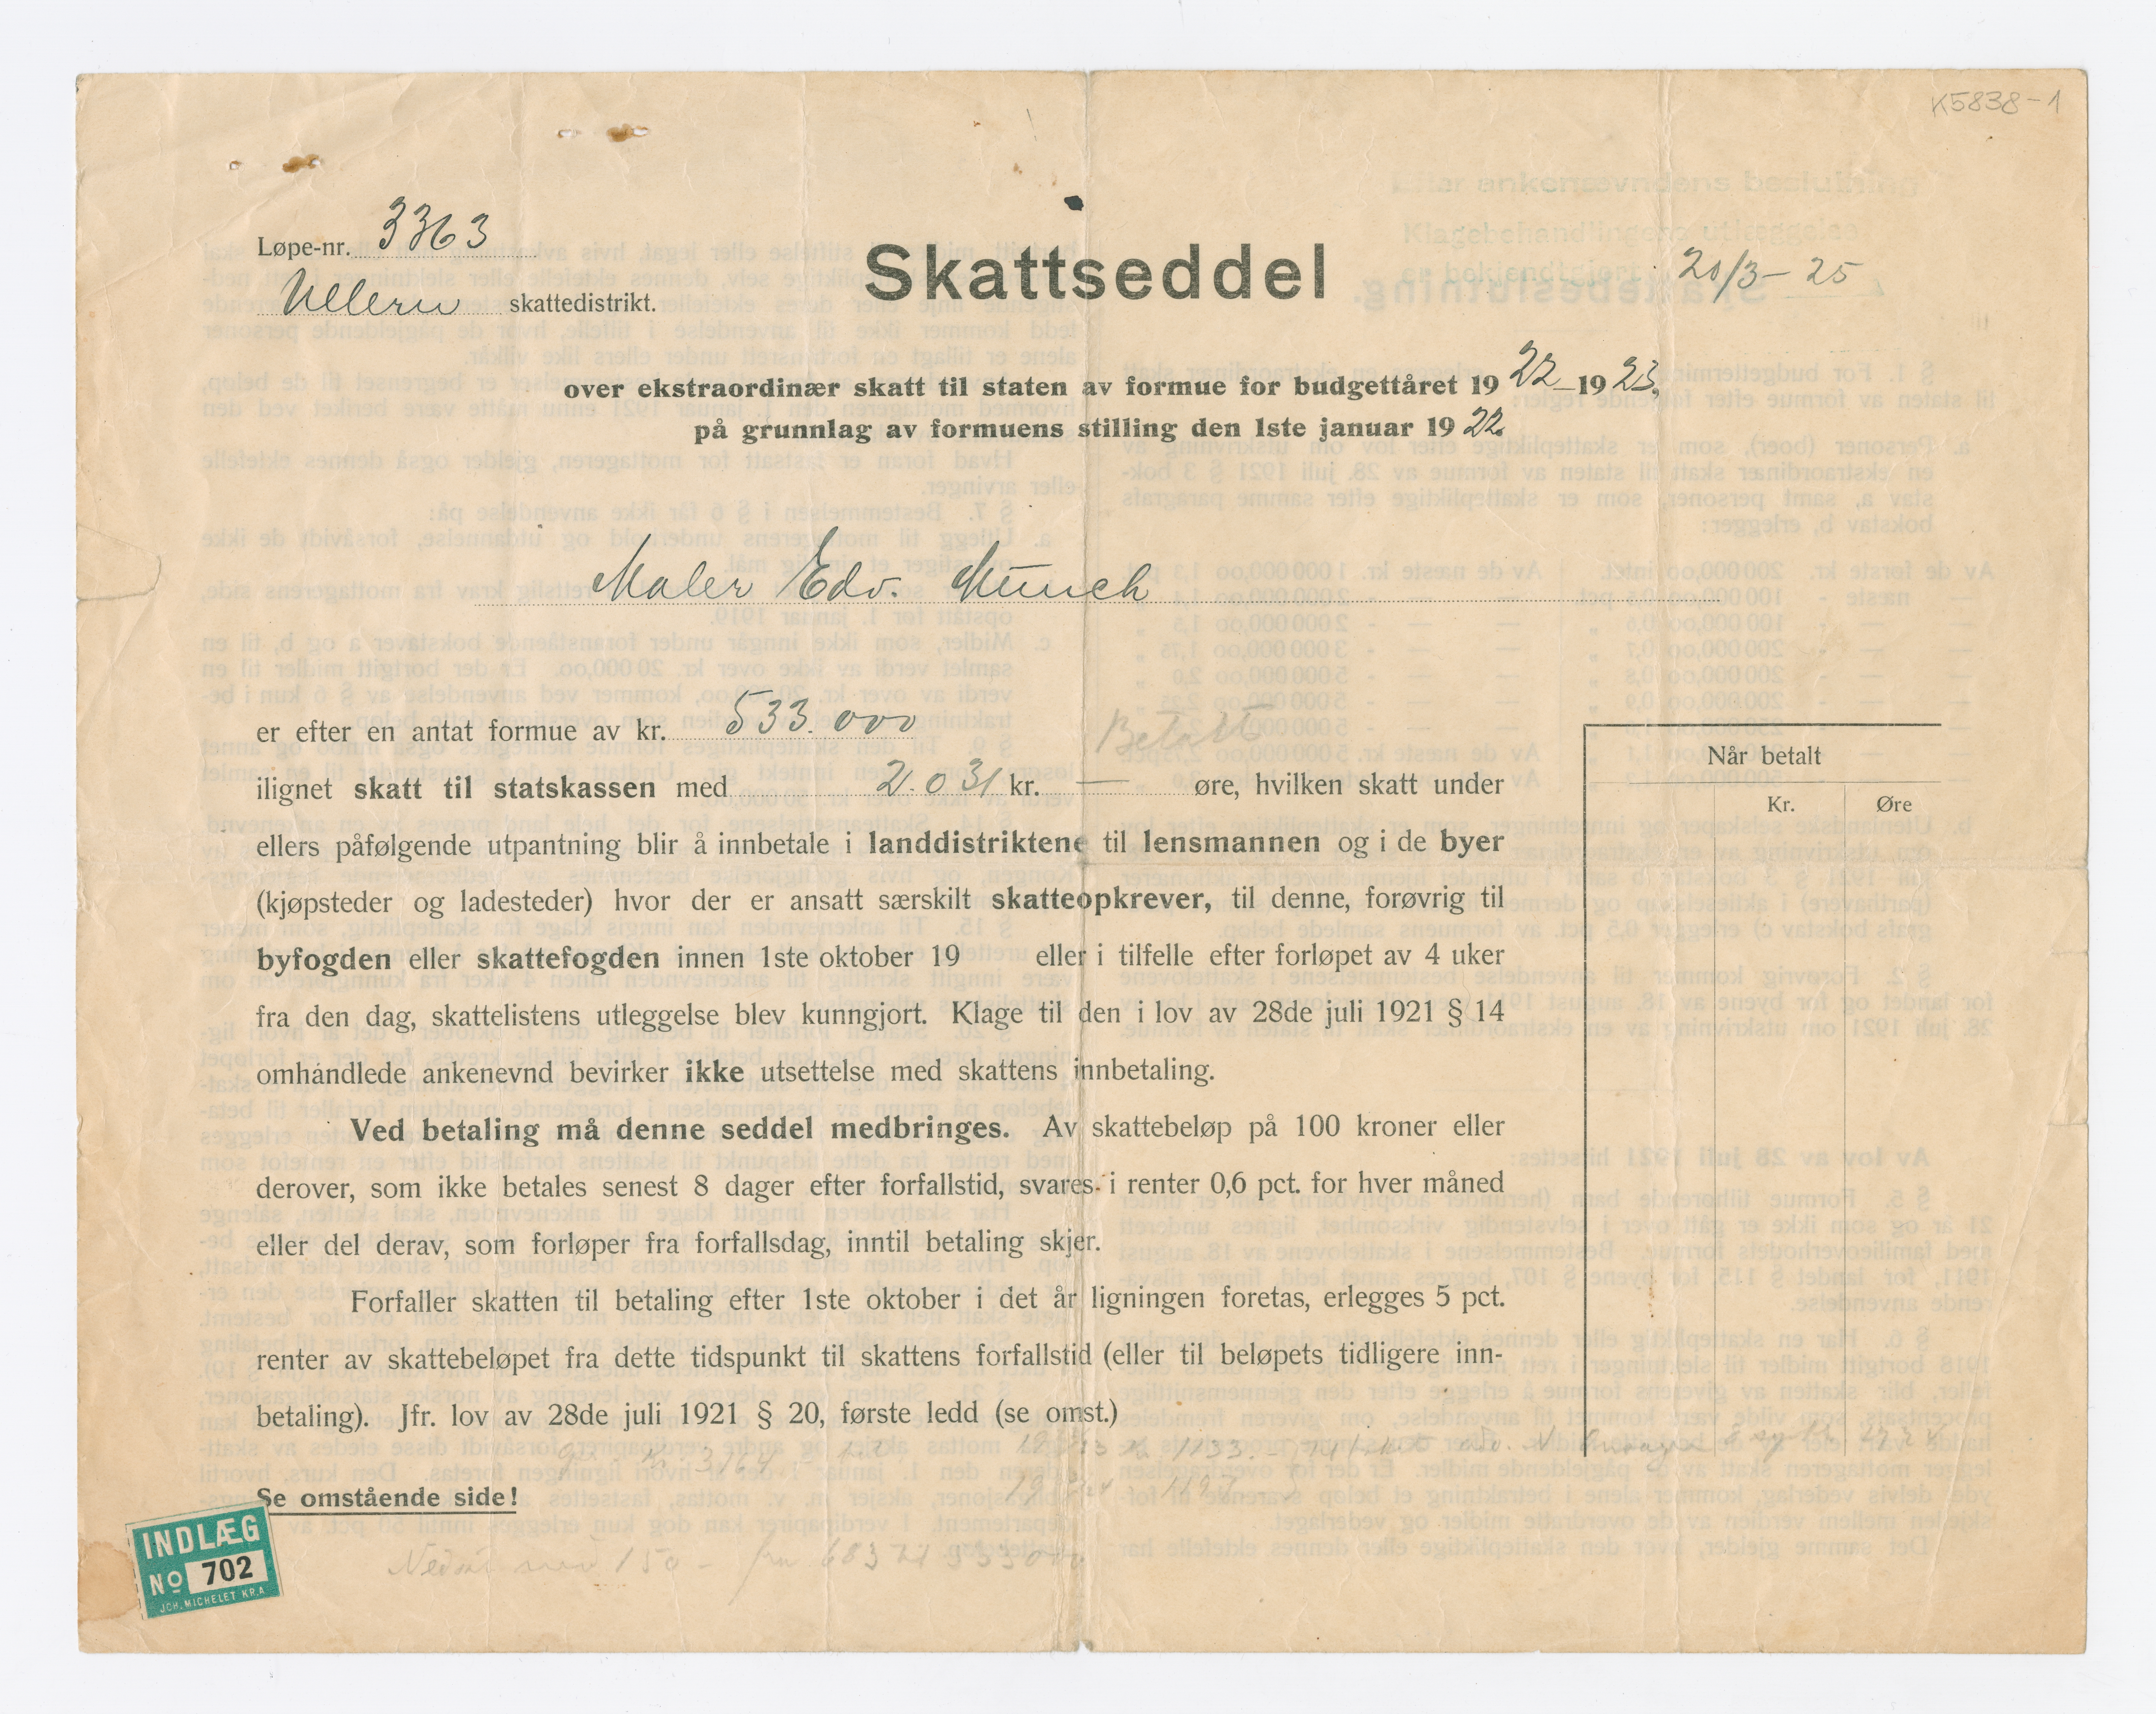 K5838-1
Efter ankenævndens beslutning
Klagebehandlingens utlæggelse
er bekjendtgjort 20/3-25
Løpe-nr. 3363
Ullern skattedistrikt.
Skattseddel
over ekstraordinær skatt til staten av formue for budgettåret 1922-1923,
på grunnlag av formuens stilling den 1ste januar 1922.
Maler Edv. Munch
er efter en antat formue av kr. 533.000
Betalt
ilignet skatt til statskassen med 2.031 kr. — øre, hvilken skatt under
ellers påfølgende utpantning blir å innbetale i landdistriktene til lensmannen og i de byer
(kjøpsteder og ladesteder) hvor der er ansatt særskilt skatteopkrever, til denne, forøvrig til
byfogden eller skattefogden innen 1ste oktober 19 eller i tilfelle efter forløpet av 4 uker
fra den dag, skattelistens utleggelse blev kunngjort. Klage til den i lov av 28de juli 1921 § 14
omhandlede ankenevnd bevirker ikke utsettelse med skattens innbetaling.
Ved betaling må denne seddel medbringes. Av skattebeløp på 100 kroner eller
derover, som ikke betales senest 8 dager efter forfallstid, svares i renter 0,6 pct. for hver måned
eller del derav, som forløper fra forfallsdag, inntil betaling skjer.
Forfaller skatten til betaling efter 1ste oktober i det år ligningen foretas, erlegges 5 pct.
renter av skattebeløpet fra dette tidspunkt til skattens forfallstid (eller til beløpets tidligere inn-
betaling). Jfr. lov av 28de juli 1921 § 20, første ledd (se omst.)
Når betalt
Kr. Øre
Kr. 3164 1133.-
Se omstående side!
150 - fra 683 til 533000
INDLÆG
No 702
JOH. MICHELET KR.A